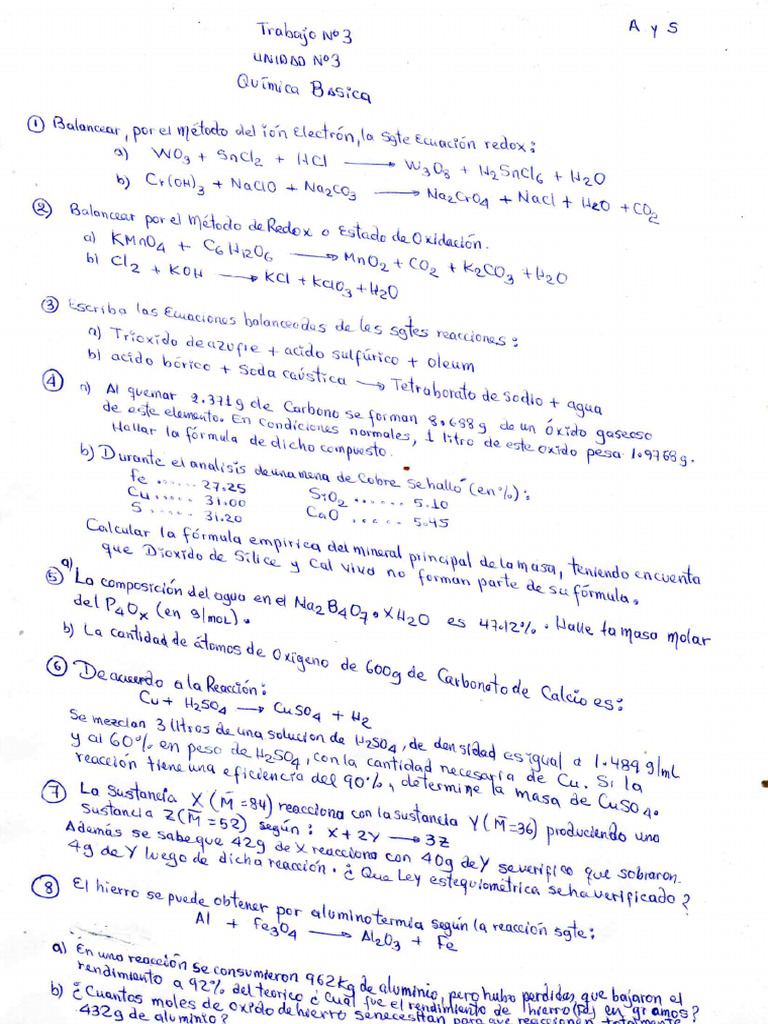 A y S
Trabajo Nº3
UNIDAD Nº3
Química BASICA
① Balancear, por el método del ión Electrón, la sgte Ecuación redox:
a) WO3 + SnCl2 + HCl → W3O8 + H2SnCl6 + H2O
b) Cr(OH)3 + NaClO + Na2CO3 → Na2CrO4 + NaCl + H2O + CO2
② Balancear por el Método de Redox o Estado de Oxidación.
a) KMnO4 + C6H12O6 → MnO2 + CO2 + K2CO3 + H2O
b) Cl2 + KOH → KCl + KClO3 + H2O
③ Escriba las Ecuaciones balanceadas de las sgtes reacciones:
a) Trioxido de azufre + acido sulfúrico + oleum
b) acido bórico + Soda caústica → Tetraborato de sodio + agua
④ a) Al quemar 2.371g de Carbono se forman 8.688g de un óxido gaseoso
de este elemento. En condiciones normales, 1 litro de este oxido pesa 1.9768g.
Hallar la fórmula de dicho compuesto.
b) Durante el analisis de una mena de Cobre se halló (en %):
Fe ..... 27.25 SiO2 ...... 5.10
Cu ..... 31.00 CaO ..... 5.45
S ..... 31.20
Calcular la fórmula empirica del mineral principal de la masa, teniendo en cuenta
que Dioxido de Silice y Cal vivo no forman parte de su fórmula.
⑤ a) La composición del agua en el Na2B4O7 . XH2O es 47.12%. Halle la masa molar
del P4Ox (en g/mol).
b) La cantidad de átomos de Oxigeno de 600g de Carbonato de Calcio es:
⑥ De acuerdo a la Reacción:
Cu + H2SO4 → CuSO4 + H2
Se mezclan 3 litros de una solucion de H2SO4, de densidad es igual a 1.489 g/mL
y al 60% en peso de H2SO4, con la cantidad necesaria de Cu. Si la
reacción tiene una eficiencia del 90%, determine la masa de CuSO4.
⑦ La Sustancia X (M̄ =84) reacciona con la sustancia Y (M̄ =36) produciendo una
sustancia Z (M̄ =52) según: X + 2Y → 3Z
Además se sabe que 42g de X reacciona con 40g de Y se verifico que sobraron
4g de Y luego de dicha reacción. ¿ Que Ley estequiométrica se ha verificado ?
⑧ El hierro se puede obtener por aluminotermia según la reacción sgte:
Al + Fe3O4 → Al2O3 + Fe
a) En una reacción se consumieron 962Kg de aluminio, pero hubo perdidas, que bajaron el
rendimiento a 92% del teorico ¿ Cuál fue el rendimiento de hierro (Fe) en gramos?
b) ¿ Cuantos moles de oxido de hierro se necesitan para que reaccionen totalmente
432g de aluminio?